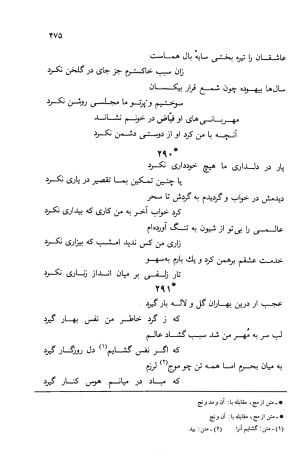 ۴۷۵
عاشقان را تیره بختی سایهٔ بال هماست
زان سبب خاکسترم جز جای در گلخن نکرد
سال‌ها بیهوده چون شمع مزار بیکسان
سوختیم و پرتو ما مجلسی روشن نکرد
مهربانی‌های او فیّاض در خونم نشاند
آنچه با من کرد او از دوستی دشمن نکرد
*۲۹۰
یار در دلداری ما هیچ خودداری نکرد
با چنین تمکین بما تقصیر در یاری نکرد
دیدمش در خواب و گردیدم به گردش تا سحر
کرد خواب آخر به من کاری که بیداری نکرد
عالمی را بی‌تو از شیون به تنگ آورده‌ام
زاری من کس ندید امشب که بیزاری نکرد
خدمت عشقم برهمن کرد و یك بارم به‌سهو
تار زلفی بر میان انداز زنّاری نکرد
*۲۹۱
عجب ار درین بهاران گل و لاله بار گیرد
که ز گرد خاطر من نفس بهار گیرد
لب سر به مُهر من شد سبب گشاد عالم
که اگر نفس گشایم(۱) دل روزگار گیرد
به میان بحرم اما همه تن چو موج(۲) لرزم
که مباد در میانم هوس کنار گیرد
* ـ متن از مج، مقابله با: آن و مد و نج
* ـ متن از مج، مقابله با: آن و نج
(۱) ـ متن: گشایم آنرا (۲) ـ متن: بید